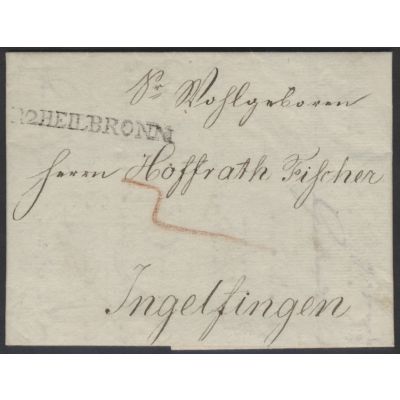 Sr Wohlgeboren
R2HEILBRONN
Herrn Hoffrath Fischer
Ingelfingen